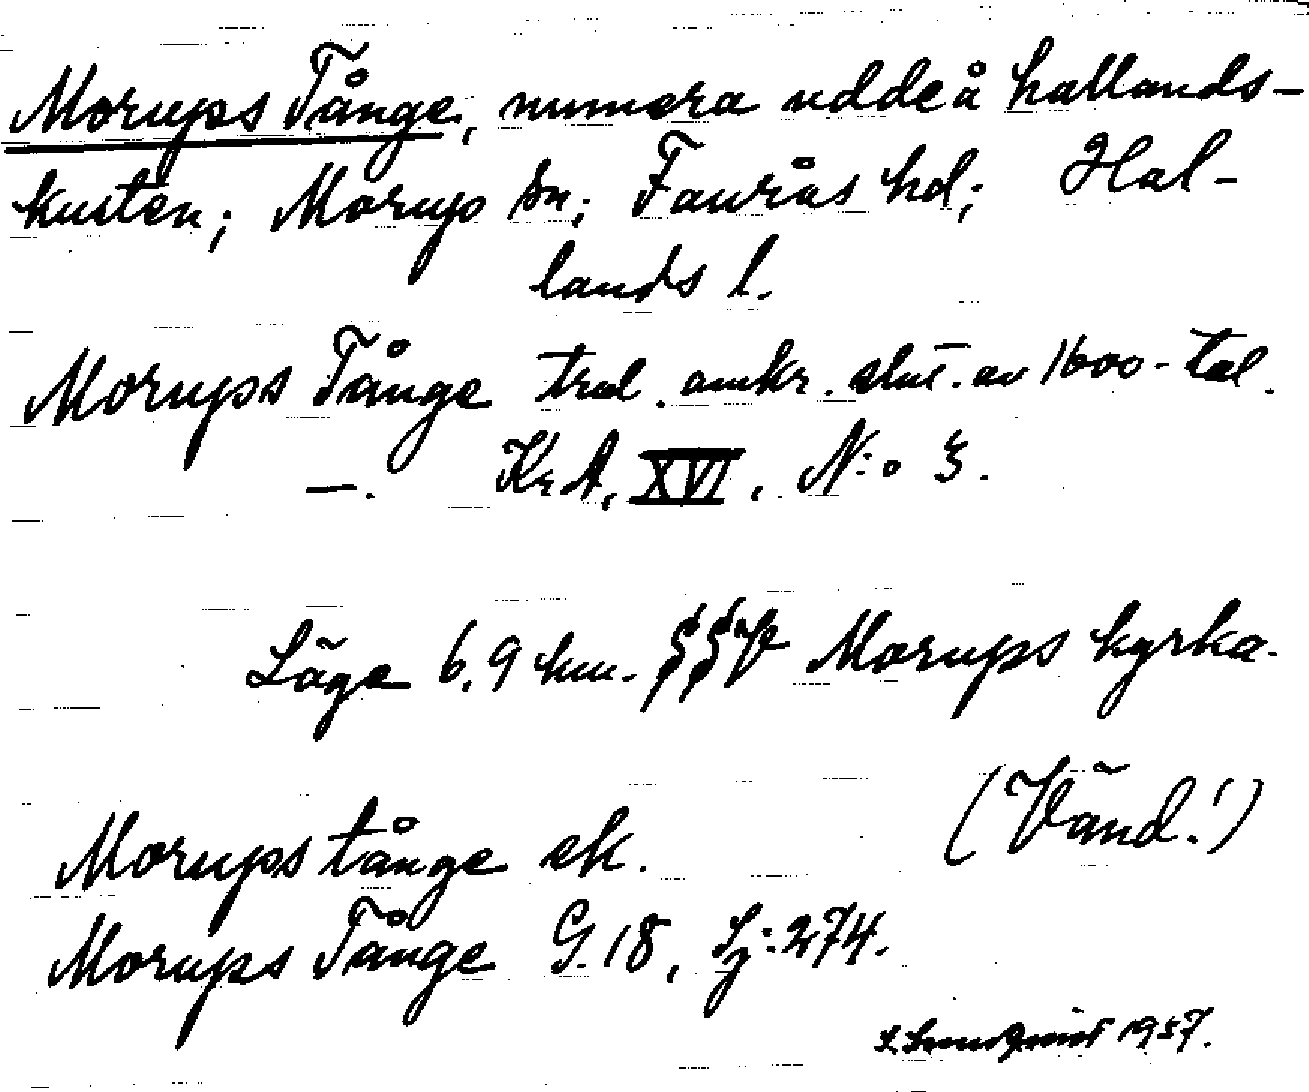 Morups Tånge, numera udde å hallands-
kusten; Morup sn; Faurås hd; Hal-
lands l.
Morups Tånge trol. omkr. slut. av 1600-tal.
—. Kr.A, XVI, N:o 3.
Läge 6,9 km. SSV Morups kyrka.
(Vänd!)
Morups tånge ek.
Morups Tånge G. 18, Lj:274.
1957.